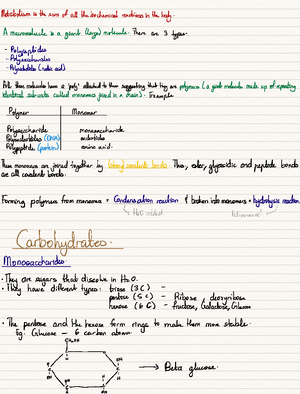 Metabolism is the sum of all the biochemical reactions in the body.
A macromolecule is a giant (large) molecule. There are 3 types:
- Polypeptides
- Polysaccharides
- Polynucleotides (nucleic acid)
All these molecules have a 'poly' attached to them suggesting that they are polymers (a giant molecule made up of repeating
identical subunits called monomers joined in a chain). Example
Polymer Monomer
Polysaccharide monosaccharide
Polynucleotides (DNA) nucleotides
Polypeptide (protein) amino acid.
These monomers are joined together by strong covalent bonds. Thus, ester, glycosidic and peptide bonds
are all covalent bonds.
Forming polymers from monomers = Condensation reaction & broken into monomers = hydrolysis reaction
Carbohydrates.
Monosaccharides
• They are sugars that dissolve in H₂O.
• They have different types: triose (3C) -
pentose (5C) - Ribose & deoxyribose
hexose (6C) - fructose, Galactose, Glucose
• The pentose and the hexose form rings to make them more stable.
Eg: Glucose - 6 carbon atoms
CH₂OH
→ Beta glucose